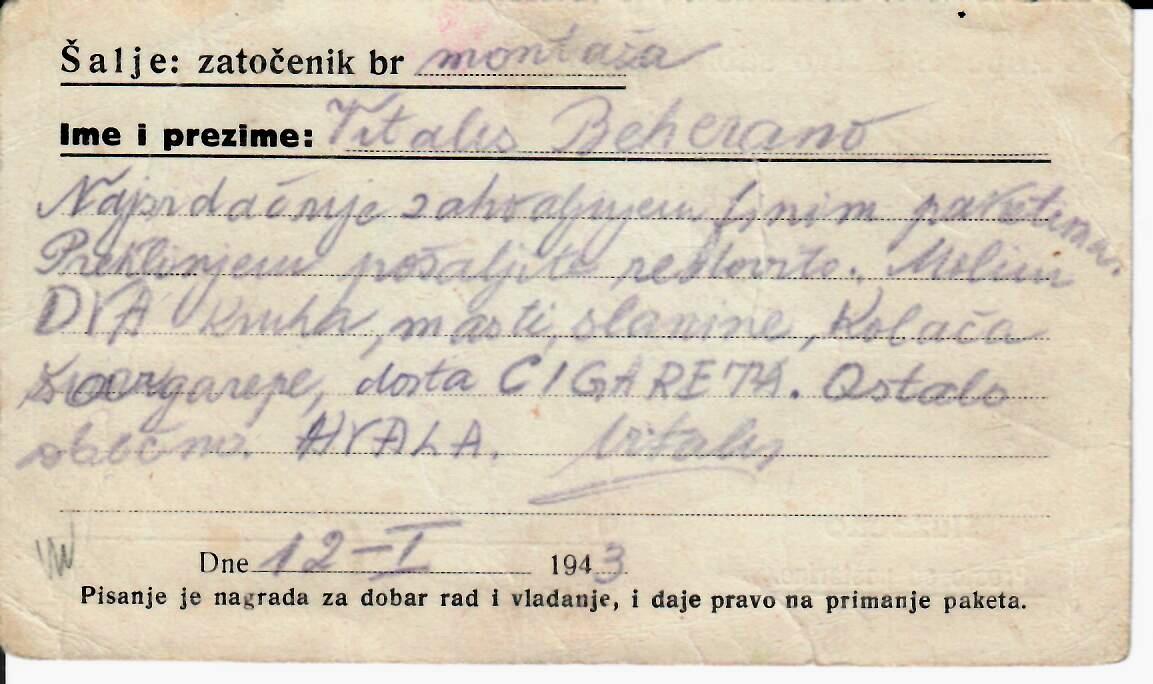 Šalje: zatočenik br montaža
Ime i prezime: Vitalis Beherano
Najsrdačnije zahvaljujem finim paketima.
Preklinjem pošaljite redovito. Molim
DVA kruha, masti, slanine, kolača
šargarepe, dosta CIGARETA. Ostalo
obično. HVALA. Vitalis
Dne 12-I 1943
Pisanje je nagrada za dobar rad i vladanje, i daje pravo na primanje paketa.